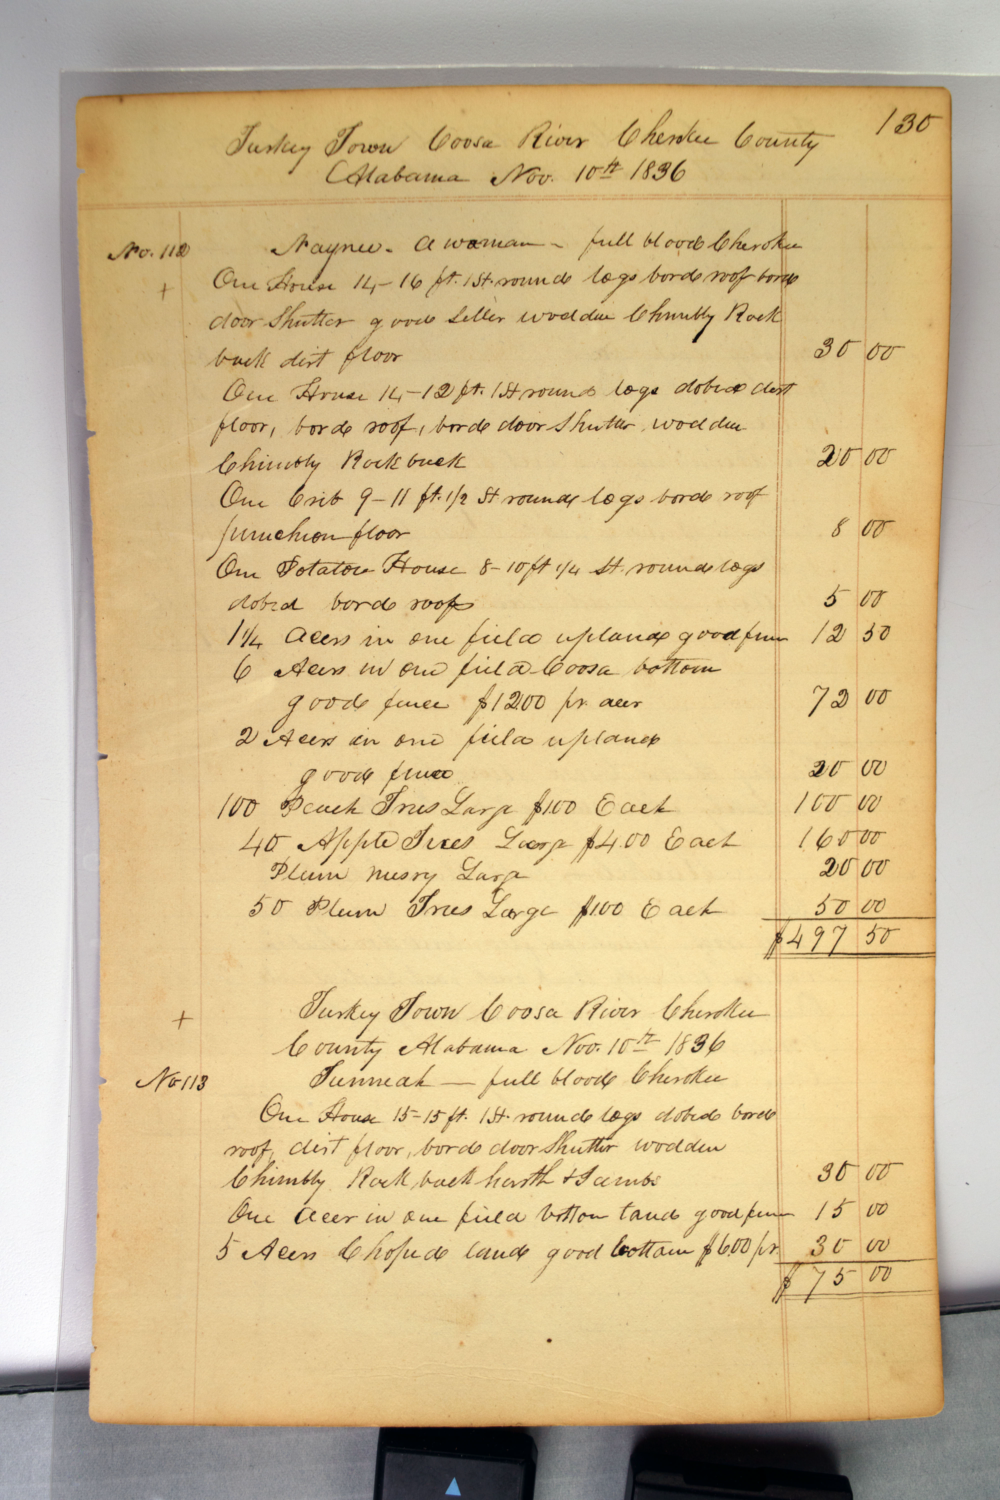 130
Turkey Town Coosa River Cherokee County
Alabama Nov. 10th 1836
No. 112 Naynee - a woman - full blood Cherokee
+ One House 14-16 ft. 1 St. round logs borde roof borde
door Shutter good Seller wodden Chimbly Rock
back dirt floor 30 00
One House 14-12 ft. 1 St round logs dobed dirt
floor, borde roof, borde door Shutter wodden
Chimbly Rock back 20 00
One Crib 9-11 ft. 1/2 St round logs borde roof
puncheon floor 8 00
One Potatoe House 8-10 ft 1/4 St. round logs
dobed borde roof 5 00
1 1/4 Acers in one field upland good fence 12 50
6 Acers in one field Coosa bottom
good fence $1200 pr. acer 72 00
2 Acers in one field upland
good fence 20 00
100 Peach Trees Large $100 Each 100 00
40 Apple Trees Large $4.00 Each 160 00
Plum nusry Large 20 00
50 Plum Trees Large $100 Each 50 00
$497 50
+ Turkey Town Coosa River Cherokee
County Alabama Nov. 10th 1836
No 113 Tunneah — full blood Cherokee
One House 15-15 ft. 1 St. round logs dobed borde
roof, dirt floor, borde door Shutter wodden
Chimbly Rock back harth & Jambs 30 00
One Acer in one field bottom land good fence 15 00
5 Acers Choped land good bottom $6.00 pr. 30 00
$75 00